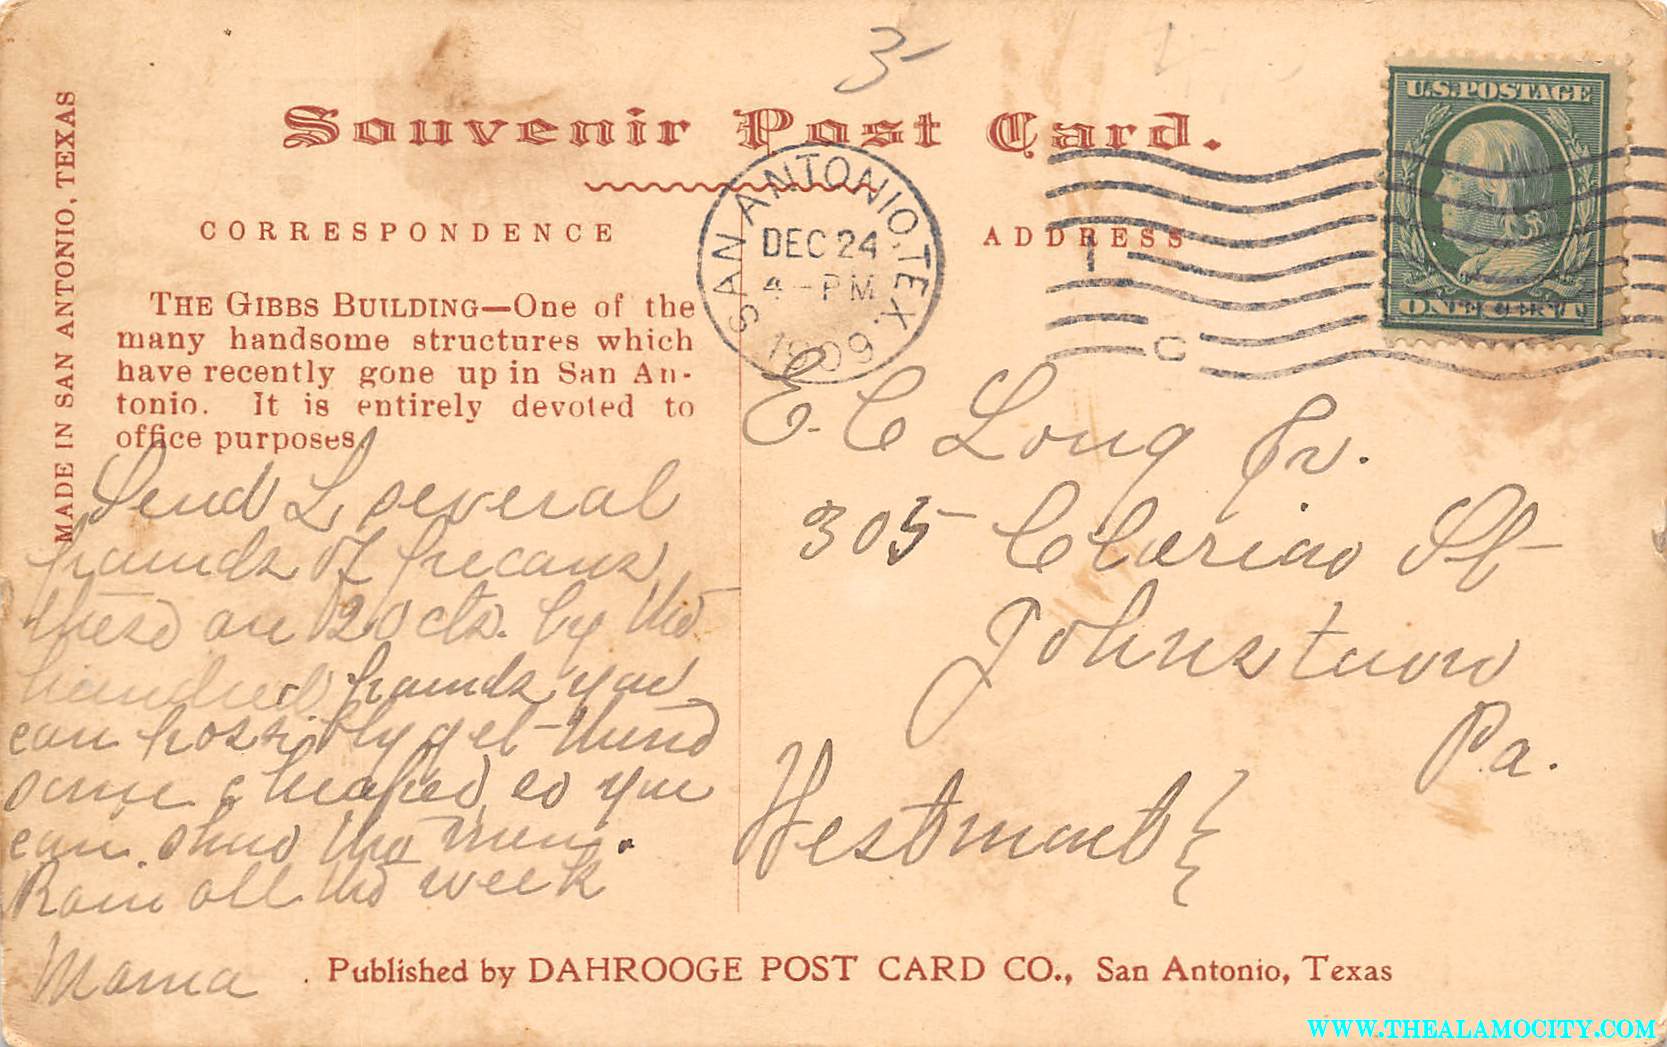 3
Souvenir Post Card.
MADE IN SAN ANTONIO, TEXAS
CORRESPONDENCE
ADDRESS
SAN ANTONIO, TEX.
DEC 24
4-PM
1909
U.S. POSTAGE
ONE CENT
C
THE GIBBS BUILDING—One of the
many handsome structures which
have recently gone up in San An-
tonio. It is entirely devoted to
office purposes.
Send L several
pounds of pecans
these are 20 cts. by the
hundred pounds you
can possibly get
some cheaper so you
can the men.
Rain all the week
Mama
E. C Long Jr.
305 St
Johnstown
Pa.
Westmont
Published by DAHROOGE POST CARD CO., San Antonio, Texas
WWW.THEALAMOCITY.COM